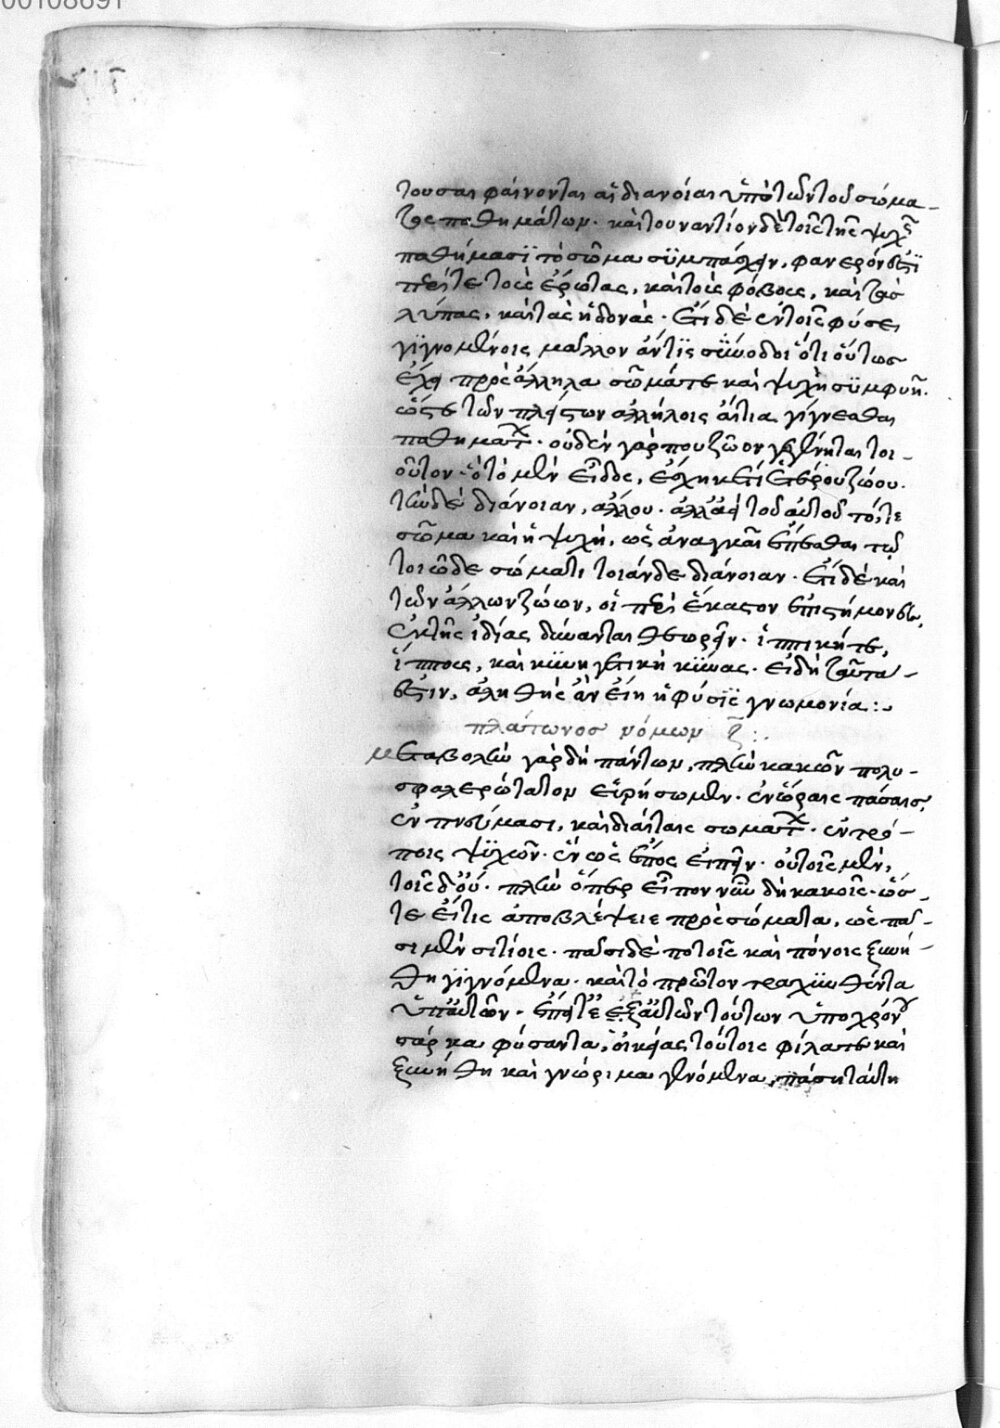 00108691
τουσαι φαίνονται αἱ διανοίαι ὑπὸ τῶν τοῦ σώμα-
τος παθημάτων. καὶ τουναντίον δὲ τοῖς τῆς ψυχῆς
παθήμασϊ τὸ σῶμα συμπάσχειν, φανερόν ἐστϊ
περί τε τοὺς ἔρωτας, καὶ τοὺς φόβους, καὶ τὰς
λύπας, καὶ τὰς ἡδονάς. ἔτι δὲ ἐν τοῖς φύσει
γϊγνομένοις μᾶλλον ἄν τϊς συνίδοι ὅτι οὕτως
ἔχει πρὸς ἄλληλα σῶμά τε καὶ ψυχὴ συμφυῆ.
ὥστε τῶν πλείστων ἀλλήλοις αἴτια γίγνεσθαι
παθημάτων. οὐδὲν γάρ που ζῶον γεγένηται τοι-
οῦτον. ὃ τὸ μὲν εἶδος, ἔσχηκεν ἑτέρου ζώου.
τὴν δὲ διάνοιαν, ἄλλου. ἀλλ' ἀεὶ τοῦ αὐτοῦ τό, τε
σῶμα καὶ ἡ ψυχή, ὡς ἀναγκαῖον ἕπεσθαι τῷ
τοιῷδε σώματι τοιάνδε διάνοιαν. ἔτι δὲ καὶ
τῶν ἄλλων ζώων, οἱ περὶ ἕκαστον ἐπιστήμονες,
ἐκ τῆς ἰδίας δύνανται θεωρεῖν. ἱππική τε,
ἵππους, καὶ κυνηγετικὴ κύνας. εἰ δὴ ταῦτα
ἐστιν, ἀληθὴς ἂν εἴη ἡ φύσϊς γνωμονία:.
πλάτωνος νόμων ζ:.
μεταβολὴν γὰρ δὴ πάντων, πλὴν κακῶν πολυ-
σφαλερώτατον εὑρήσωμεν. ἐν ὥραις πάσαις,
ἐν πνεύμασι, καὶ διαίταις σωμάτων. ἐν τρό-
ποις ψυχῶν. ἐν ὡς ἔπος εἰπεῖν. οὐ τοῖς μὲν,
τοῖς δ' οὔ. πλὴν ὅπερ εἶπον νῦν δὴ κακοῖς. ὥσ-
τε εἴ τις ἀποβλέψειε πρὸς σώματα, ὡς πᾶ-
σι μὲν σιτίοις. πᾶσι δὲ ποτοῖς καὶ πόνοις ξυνή-
θη γϊγνόμενα. καὶ τὸ πρῶτον ταραχθέντα
ὑπ' αὐτῶν. ἔπειτ' ἐξ αὐτῶν τούτων ὑπὸ χρόνου
σάρκα φύσαντα, οἰκείας τούτοις φίλα τε καὶ
ξυνήθη καὶ γνώριμα γενόμενα, πάσῃ ταύτῃ